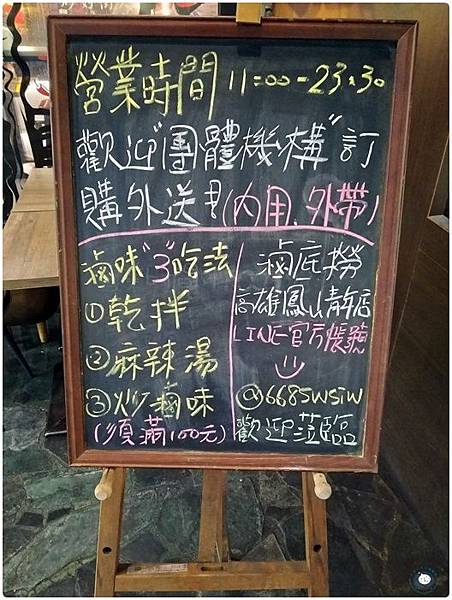 營業時間 11:00-23:30
歡迎"團體機構"訂
購外送!(內用、外帶)
滷味"3"吃法
①乾拌
②麻辣湯
③炒滷味
(須滿100元)
滷底撈
高雄鳳山青年店
LINE官方帳號
@6685wsiw
歡迎蒞臨